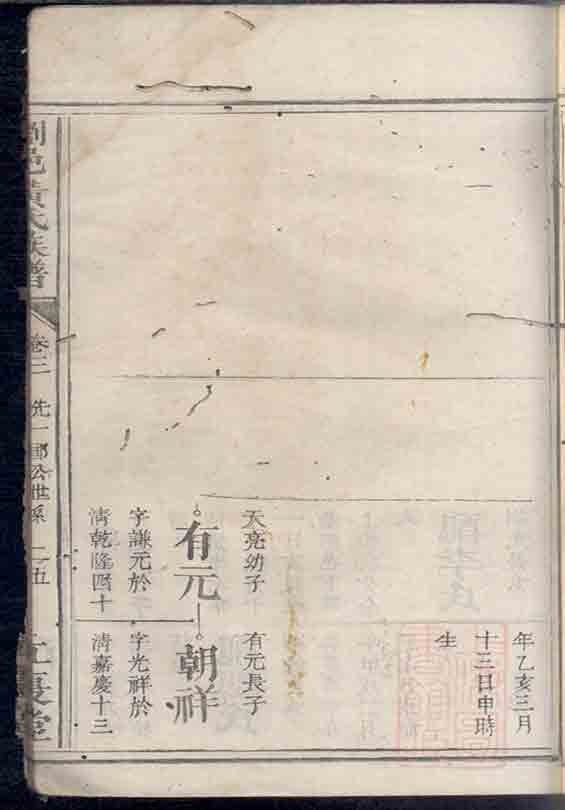 年乙亥三月
十三日申時
生
天亮幼子
有元
字謙元於
清乾隆四十
有元長子
朝祥
字光祥於
清嘉慶十三
瀏邑黃氏族譜
卷二
先一郎公世系
二五